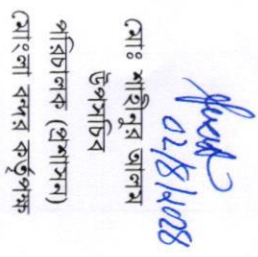 ০২/৪/২০২৪
মোঃ শাহীনুর আলম
উপসচিব
পরিচালক (প্রশাসন)
মোংলা বন্দর কর্তৃপক্ষ